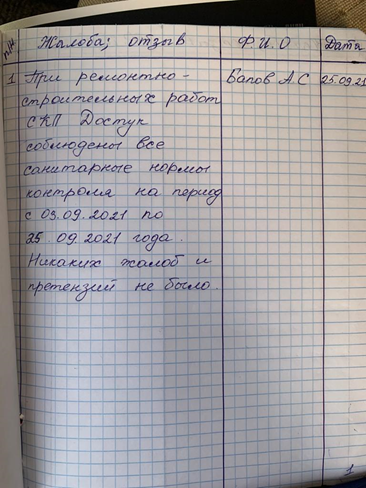 п/н Жалоба; отзыв Ф.И.О Дата
1 При ремонтно- Бапов А С 25.09.21
строительных работ
СКП Достук
соблюдены все
санитарные нормы
контроля на период
с 03.09.2021 по
25.09.2021 года.
Никаких жалоб и
претензий не было.
1